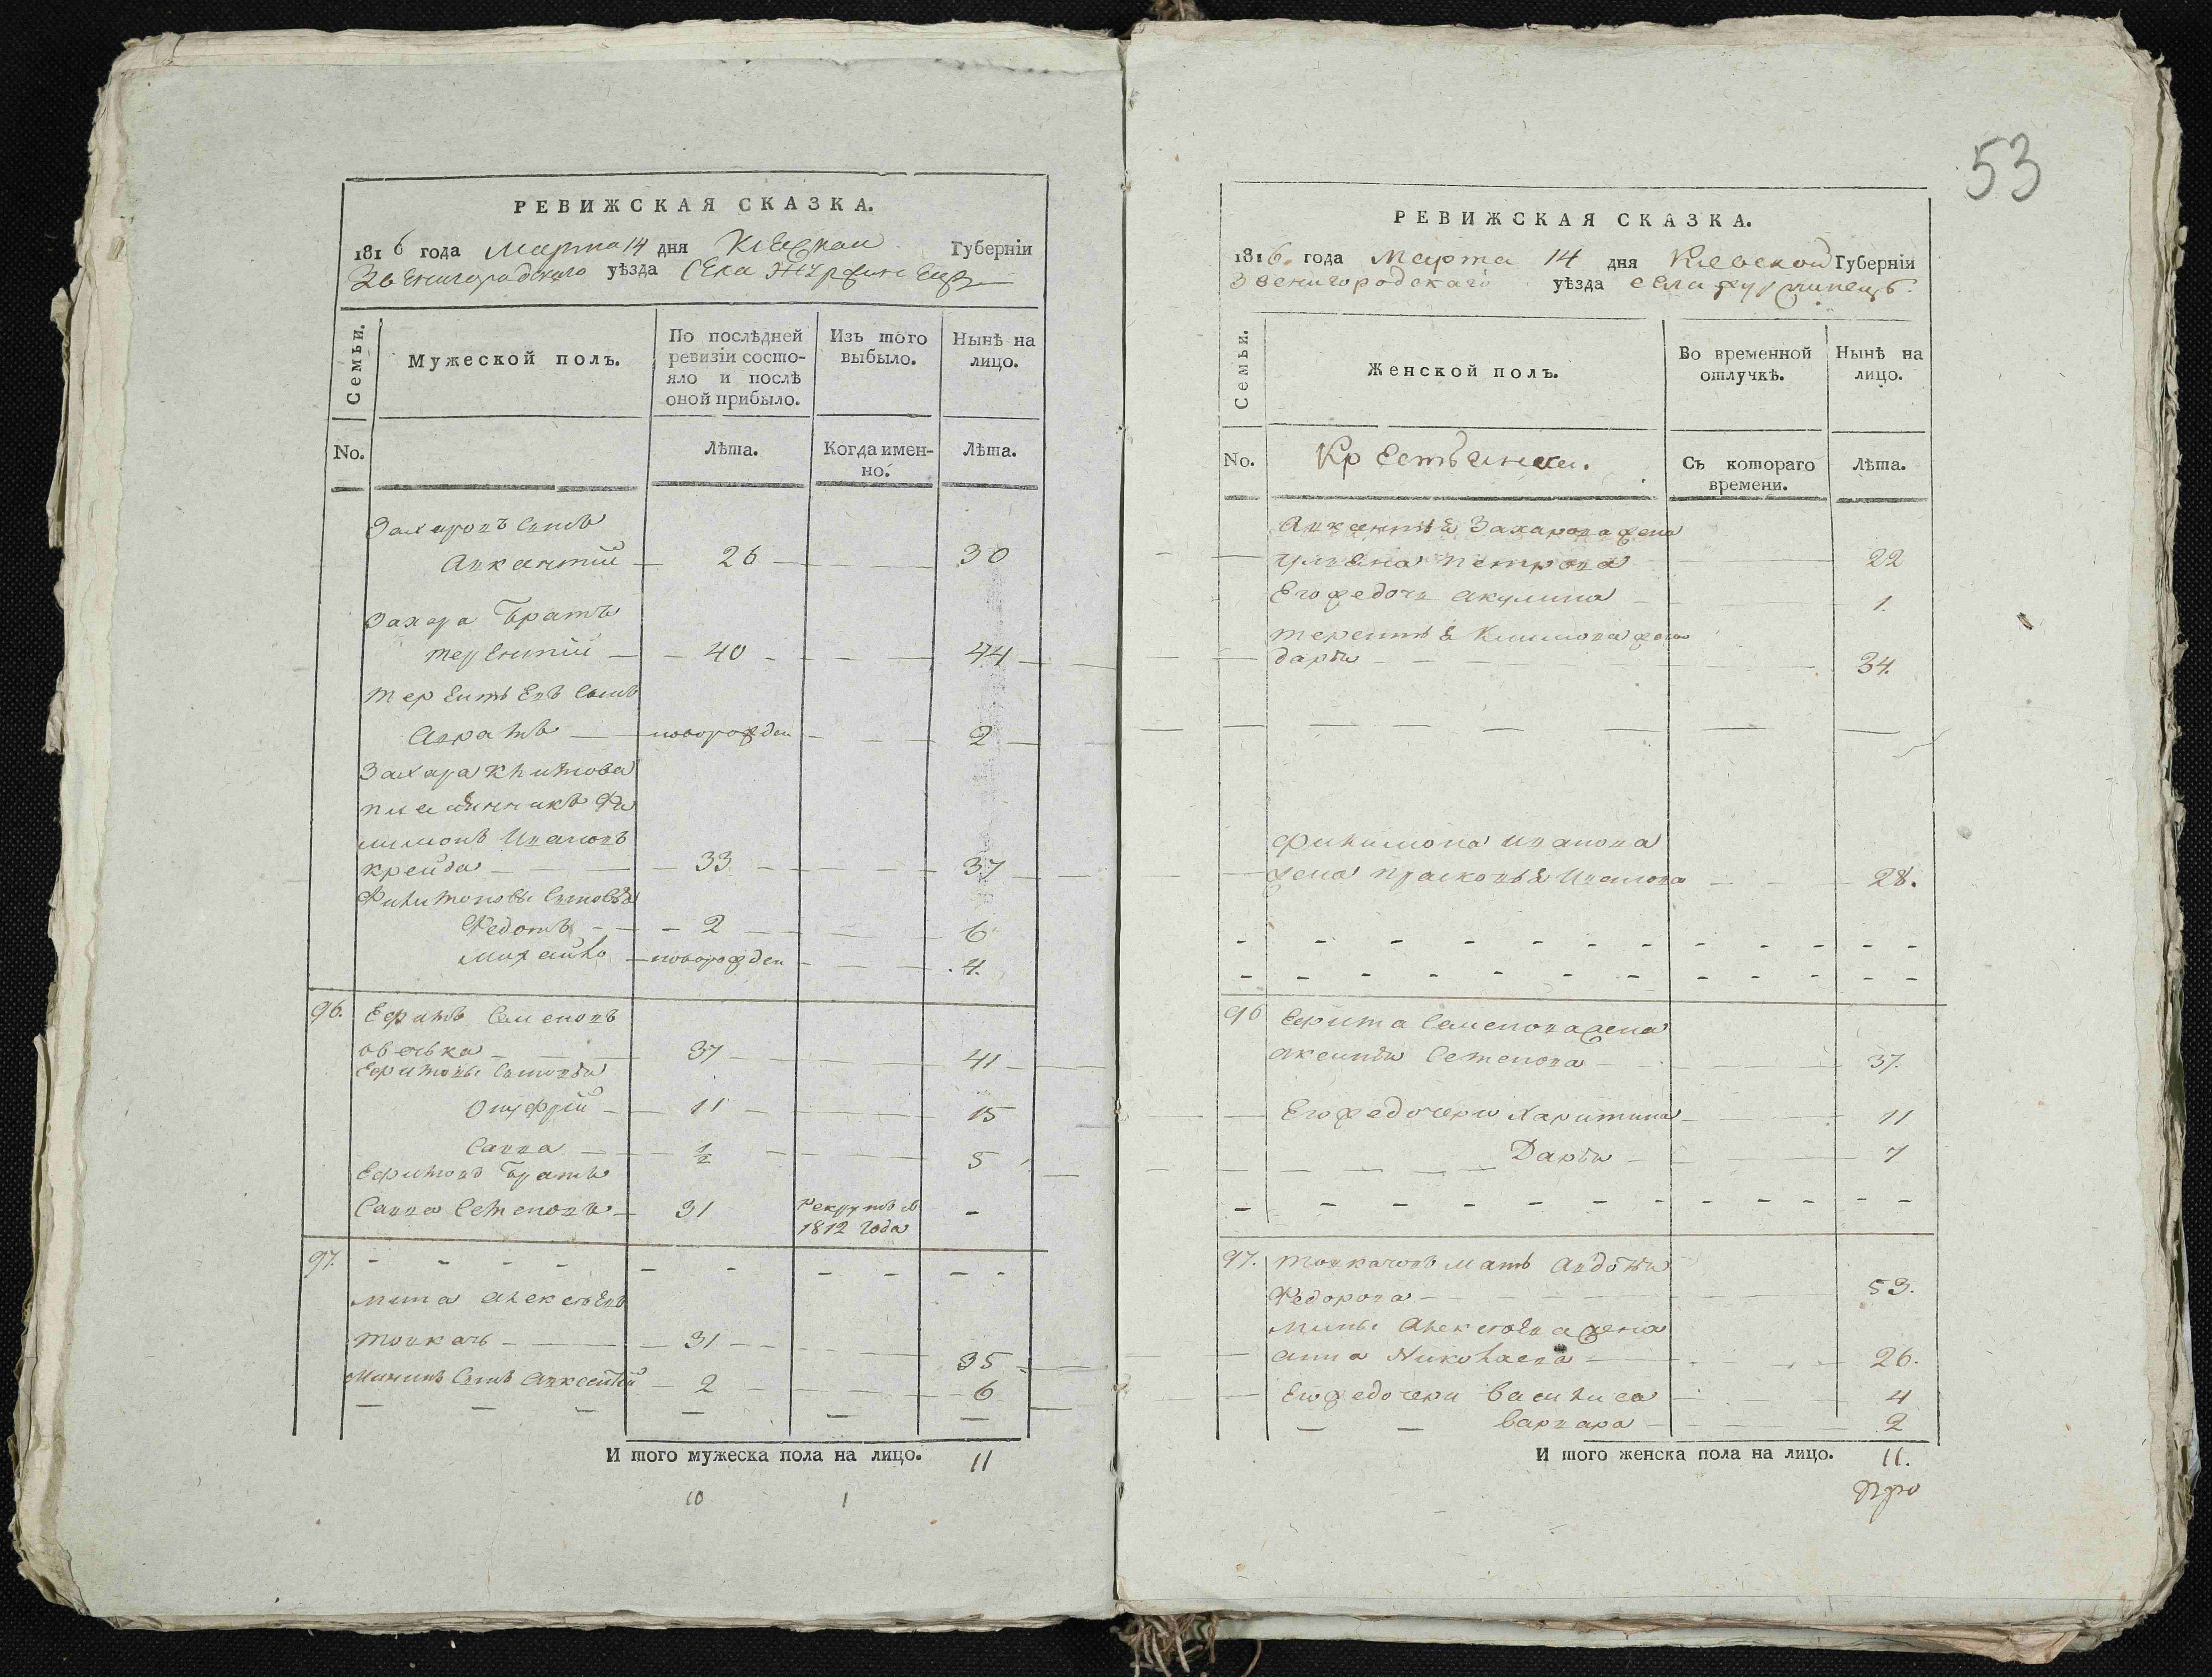 РЕВИЖСКАЯ СКАЗКА.
1816 года Марта 14 дня Киевской Губерніи
Звенигородскаго уѣзда Села
Семьи.
Мужеской полъ.
По послѣдней ревизіи состояло и послѣ оной прибыло.
Изъ того выбыло.
Нынѣ на лицо.
No.
Лѣта.
Когда именно.
Лѣта.
Захаровъ Сынъ
Авксентій 26 30
Захара Братъ
Терентій 40 44
Терентьевъ Сынъ
новорожден 2
Захара Климова
племянникъ Фи
лимонъ Ивановъ
Крейда 33 37
Филимоновы Сыновья
Федотъ 2 6
Михайло новорожден 4.
96. Ефимъ Семеновъ
овечька 37 41
Ефимовы Сыновья
Онуфрій 11 15
Савва ½ 5
Ефимовъ Братъ
Савва Семеновъ 31 рекрутъ
1812 года -
97. - - - -
Мина Алексѣевъ
Товкачь 31 35
Мининъ Сынъ Авксентій 2 6
И того мужеска пола на лицо. 11
10 1
53
РЕВИЖСКАЯ СКАЗКА.
1816. года Марта 14 дня Киевской Губерніи
Звенигородскаго уѣзда села
Семьи.
Женской полъ.
Во временной отлучкѣ.
Нынѣ на лицо.
No.
Крестьянки.
Съ котораго времени.
Лѣта.
Авксентія Захарова жена
Ульяна Петрова 22
Его же дочь Акулина 1.
Терентія Климова жена
Дарья 34.
Филимона Иванова
жена Прасковья Иванова 28.
96 Ефима Семенова жена
Аксинья Семенова 37.
Его же дочери Харитина 11
Дарья 7
97. Товкачовъ мать Авдотья
Федорова 53.
Мины Алексѣева жена
Анна Николаева 26.
Его же дочери Василиса 4
Варвара 2
И того женска пола на лицо. 11.